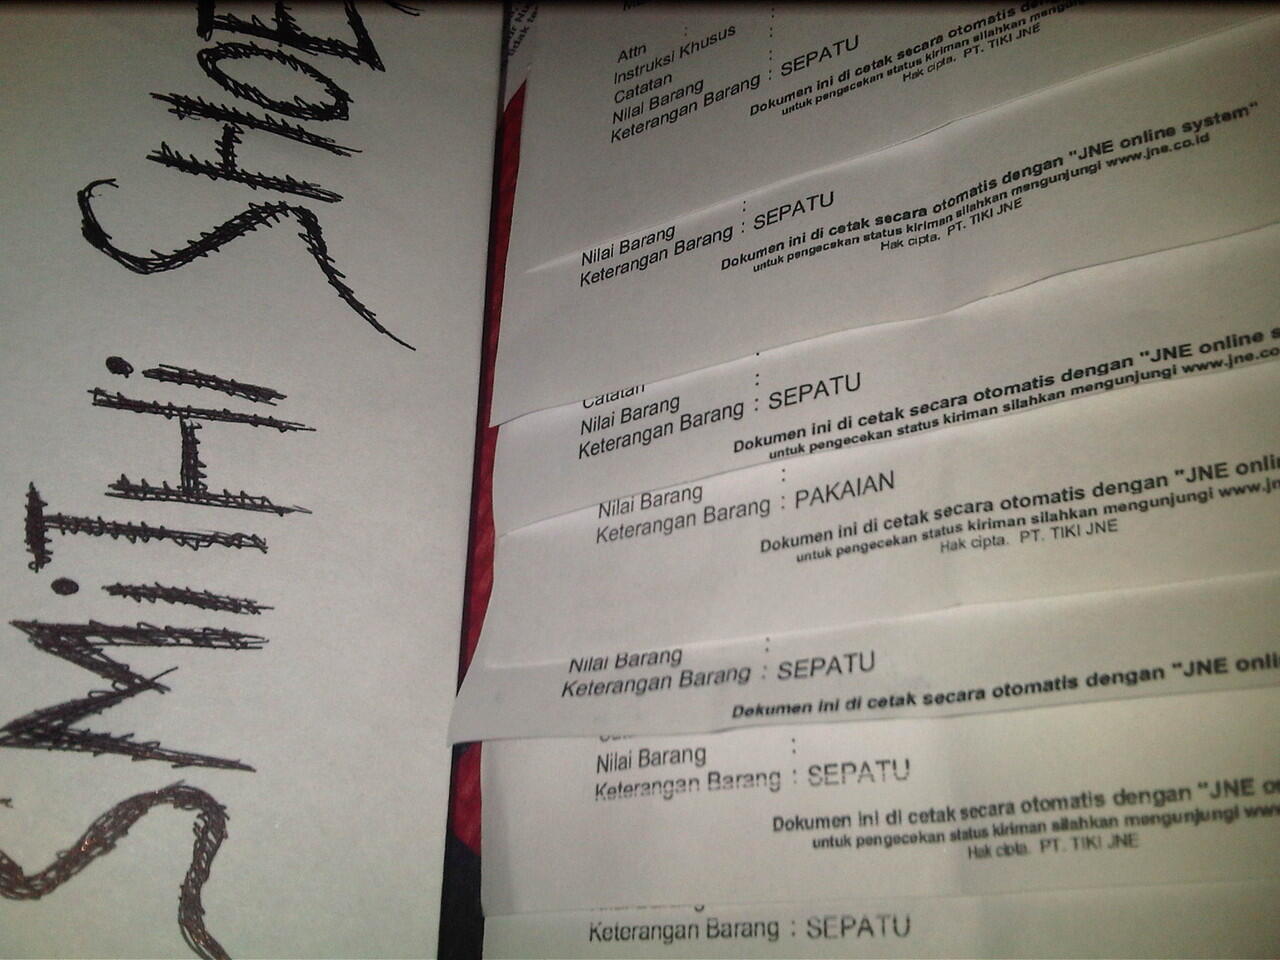 SMiTHHi SHOE
Attn :
Instruksi Khusus
Catatan :
Nilai Barang :
Keterangan Barang : SEPATU
Dokumen ini di cetak secara otomatis
untuk pengecekan status kiriman silahkan
Hak cipta. PT. TIKI JNE
Nilai Barang :
Keterangan Barang : SEPATU
Dokumen ini di cetak secara otomatis dengan "JNE online system"
untuk pengecekan status kiriman silahkan mengunjungi www.jne.co.id
Hak cipta. PT. TIKI JNE
Catatan :
Nilai Barang :
Keterangan Barang : SEPATU
Dokumen ini di cetak secara otomatis dengan "JNE online s
untuk pengecekan status kiriman silahkan mengunjungi www.jne.co
Nilai Barang :
Keterangan Barang : PAKAIAN
Dokumen ini di cetak secara otomatis dengan "JNE onli
untuk pengecekan status kiriman silahkan mengunjungi www.jn
Hak cipta. PT. TIKI JNE
Nilai Barang :
Keterangan Barang : SEPATU
Dokumen ini di cetak secara otomatis dengan "JNE onli
Nilai Barang :
Keterangan Barang : SEPATU
Dokumen ini di cetak secara otomatis dengan "JNE o
untuk pengecekan status kiriman silahkan mengunjungi www
Hak cipta. PT. TIKI JNE
Keterangan Barang : SEPATU